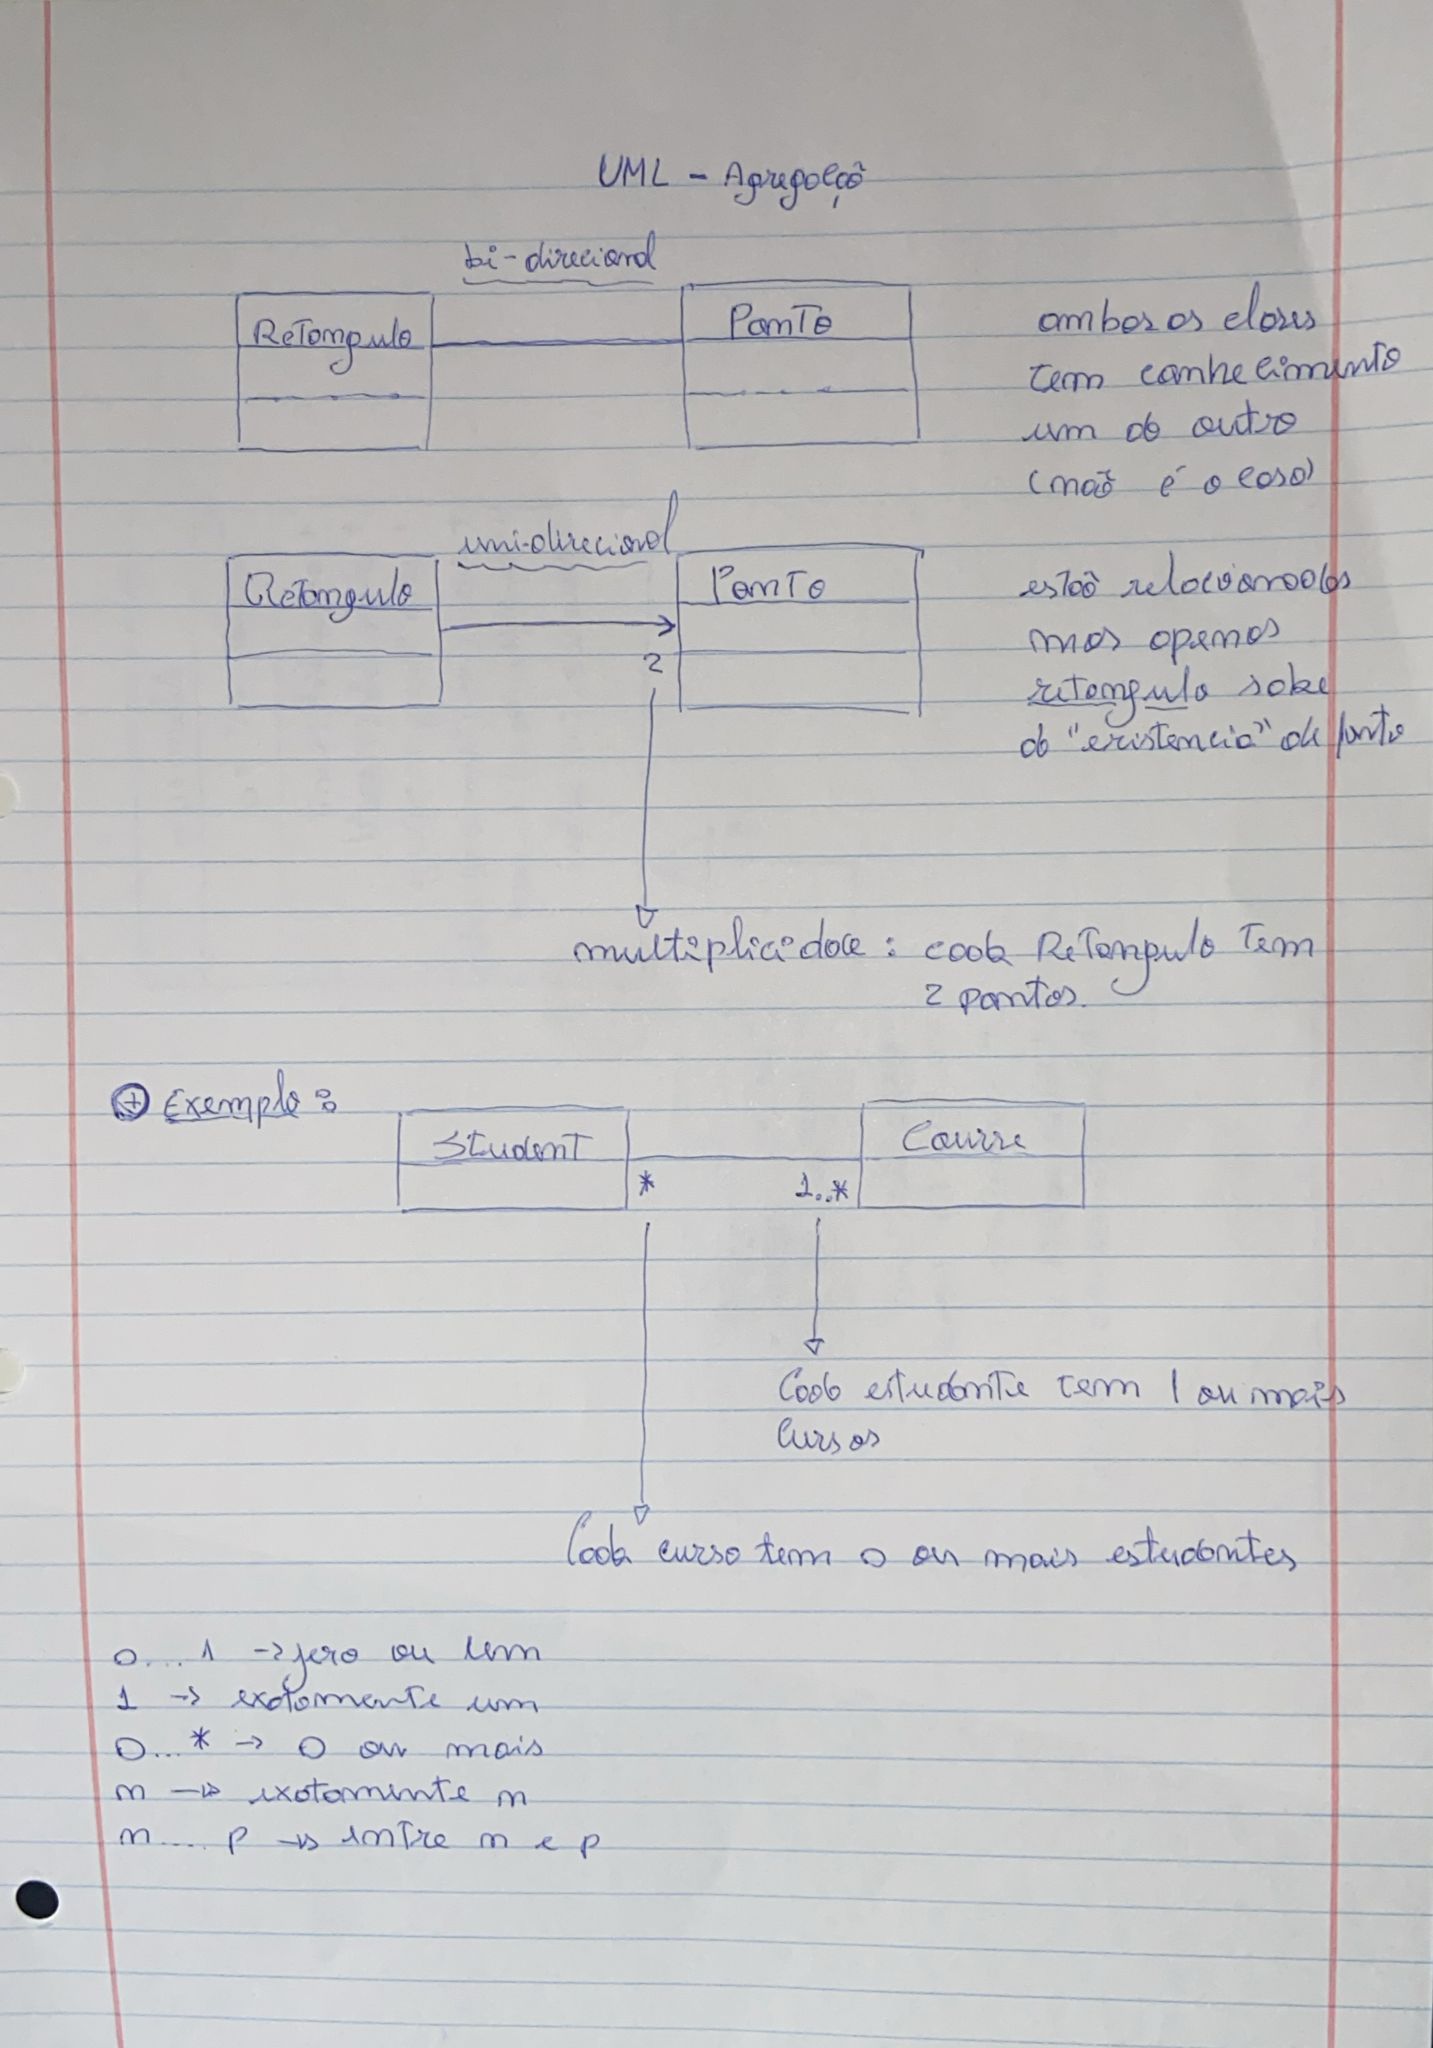 UML - Agregação
bi-direcional
Retangulo
Ponto
ambos os clases
tem conhecimento
um do outro
(não é o caso)
uni-direcional
Retangulo
Ponto
2
estão relacionados
mas apenas
retangulo sabe
da "existencia" de ponto
multiplicidade: cada Retangulo tem
2 pontos.
+ Exemplo:
Student
Course
*
1..*
Cada estudante tem 1 ou mais
cursos
Cada curso tem 0 ou mais estudantes
0...1 -> zero ou um
1 -> exatamente um
0...* -> 0 ou mais
n -> exatamente n
n....p -> entre n e p